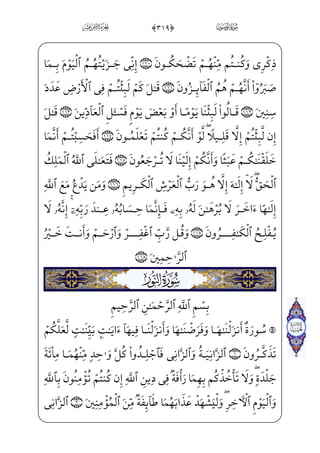 سورة المؤمنون ﴿٣١٩﴾ الجزء الثامن عشر
ذِكْرِى وَكُنتُم مِّنْهُمْ تَضْحَكُونَ ﴿١١٠﴾ إِنِّى جَزَيْتُهُمُ ٱلْيَوْمَ بِمَا
صَبَرُوٓا۟ أَنَّهُمْ هُمُ ٱلْفَآئِزُونَ ﴿١١١﴾ قَٰلَ كَمْ لَبِثْتُمْ فِى ٱلْأَرْضِ عَدَدَ
سِنِينَ ﴿١١٢﴾ قَالُوا۟ لَبِثْنَا يَوْمًا أَوْ بَعْضَ يَوْمٍ فَسْـَٔلِ ٱلْعَآدِّينَ ﴿١١٣﴾ قَٰلَ
إِن لَّبِثْتُمْ إِلَّا قَلِيلًا ۖ لَّوْ أَنَّكُمْ كُنتُمْ تَعْلَمُونَ ﴿١١٤﴾ أَفَحَسِبْتُمْ أَنَّمَا
خَلَقْنَٰكُمْ عَبَثًا وَأَنَّكُمْ إِلَيْنَا لَا تُرْجَعُونَ ﴿١١٥﴾ فَتَعَٰلَى ٱللَّهُ ٱلْمَلِكُ
ٱلْحَقُّ ۖ لَآ إِلَٰهَ إِلَّا هُوَ رَبُّ ٱلْعَرْشِ ٱلْكَرِيمِ ﴿١١٦﴾ وَمَن يَدْعُ مَعَ ٱللَّهِ
إِلَٰهًا ءَاخَرَ لَا بُرْهَٰنَ لَهُۥ بِهِۦ فَإِنَّمَا حِسَابُهُۥ عِندَ رَبِّهِۦٓ ۚ إِنَّهُۥ لَا
يُفْلِحُ ٱلْكَٰفِرُونَ ﴿١١٧﴾ وَقُل رَّبِّ ٱغْفِرْ وَٱرْحَمْ وَأَنتَ خَيْرُ
ٱلرَّٰحِمِينَ ﴿١١٨﴾
سُورَةُ النُّورِ
بِسْمِ ٱللَّهِ ٱلرَّحْمَٰنِ ٱلرَّحِيمِ
سُورَةٌ أَنزَلْنَٰهَا وَفَرَضْنَٰهَا وَأَنزَلْنَا فِيهَآ ءَايَٰتٍۭ بَيِّنَٰتٍ لَّعَلَّكُمْ
تَذَكَّرُونَ ﴿١﴾ ٱلزَّانِيَةُ وَٱلزَّانِى فَٱجْلِدُوا۟ كُلَّ وَٰحِدٍ مِّنْهُمَا مِا۟ئَةَ
جَلْدَةٍ ۖ وَلَا تَأْخُذْكُم بِهِمَا رَأْفَةٌ فِى دِينِ ٱللَّهِ إِن كُنتُمْ تُؤْمِنُونَ بِٱللَّهِ
وَٱلْيَوْمِ ٱلْءَاخِرِ ۖ وَلْيَشْهَدْ عَذَابَهُمَا طَآئِفَةٌ مِّنَ ٱلْمُؤْمِنِينَ ﴿٢﴾ ٱلزَّانِى